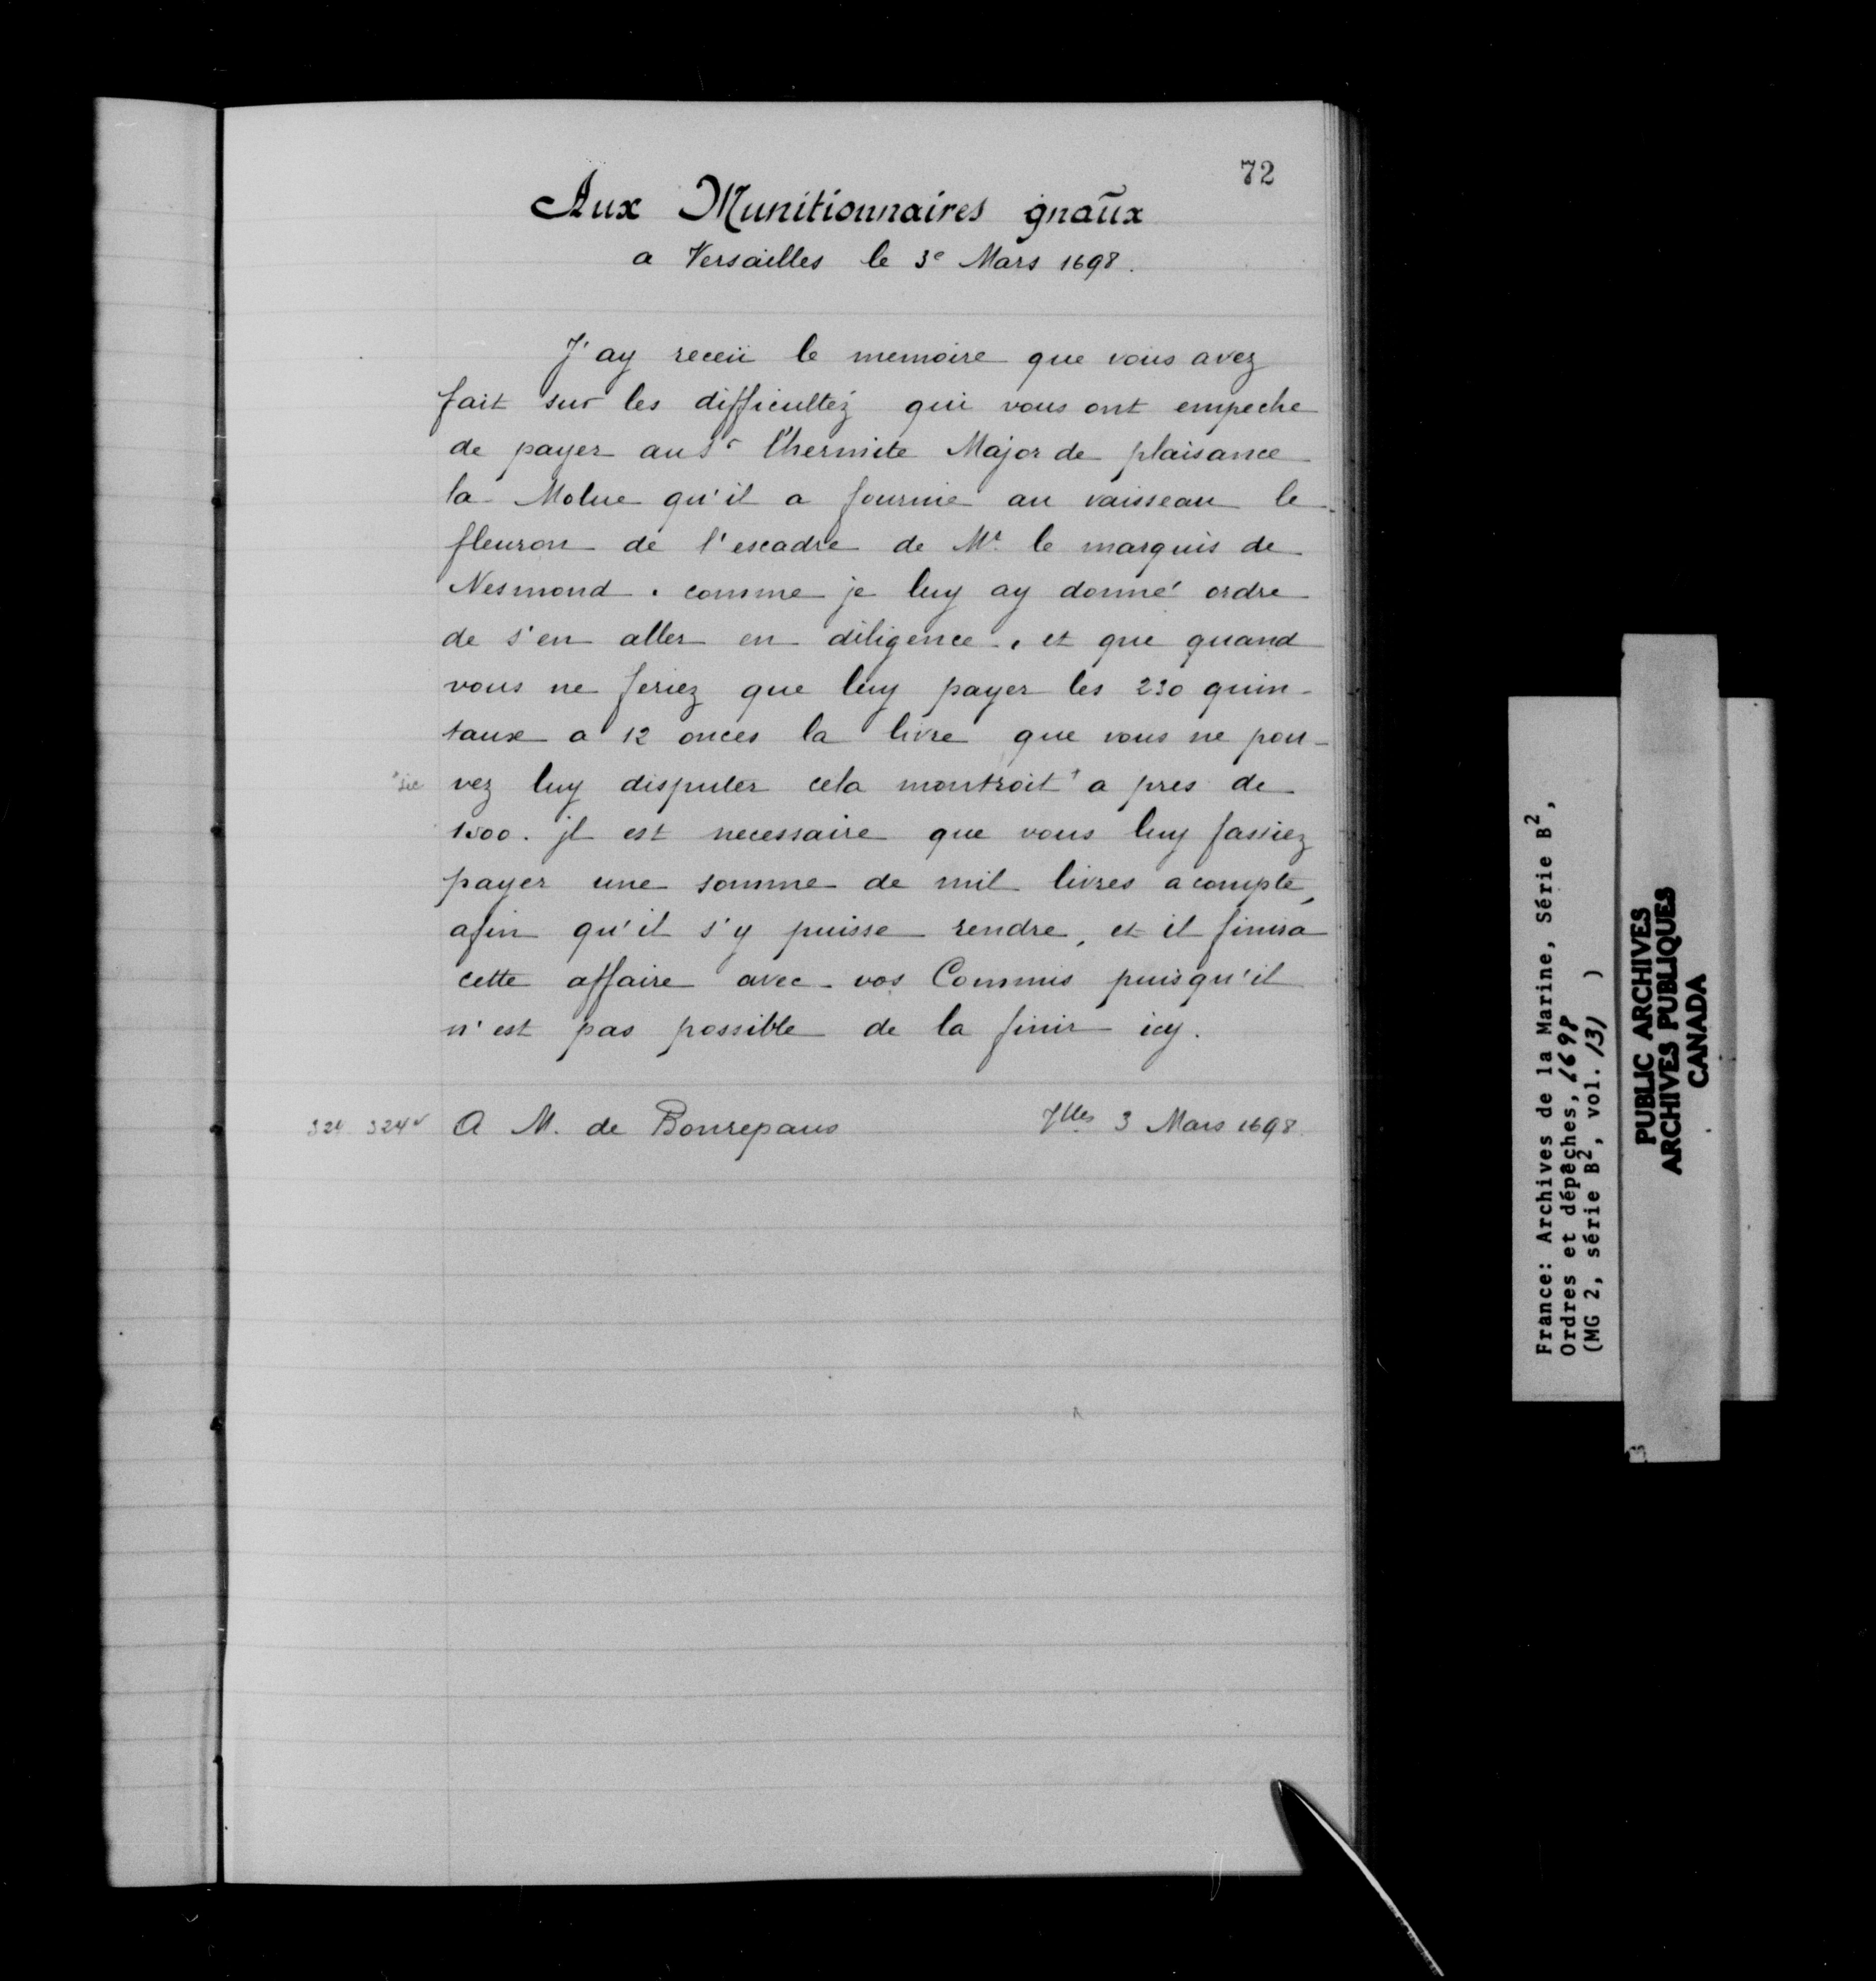 72
Aux Munitionnaires gnaūx
a Versailles le 3e Mars 1698.
J'ay receü le memoire que vous avez
fait sur les difficultéz qui vous ont empeche
de payer au Sr l'hermite Major de plaisance
la Molue qu'il a fournie au vaisseau le
fleuron de l'escadre de Mr. le marquis de
Nesmond. comme je luy ay donné ordre
de s'en aller en diligence, et que quand
vous ne feriez que luy payer les 230 quin-
taux a 12 onces la livre que vous ne pou-
+sic vez luy disputer cela montroit + a pres de
1500. jl est necessaire que vous luy fassiez
payer une somme de mil livres acompte,
afin qu'il s'y puisse rendre, et il finira
cette affaire avec vos Commis puisqu'il
n'est pas possible de la finir icy.
324 324v A M. de Bonrepaus Vlles 3 Mars 1698.
France: Archives de la Marine, Série B2,
Ordres et dépêches, 1698
(MG 2, série B2, vol. 131 )
PUBLIC ARCHIVES
ARCHIVES PUBLIQUES
CANADA